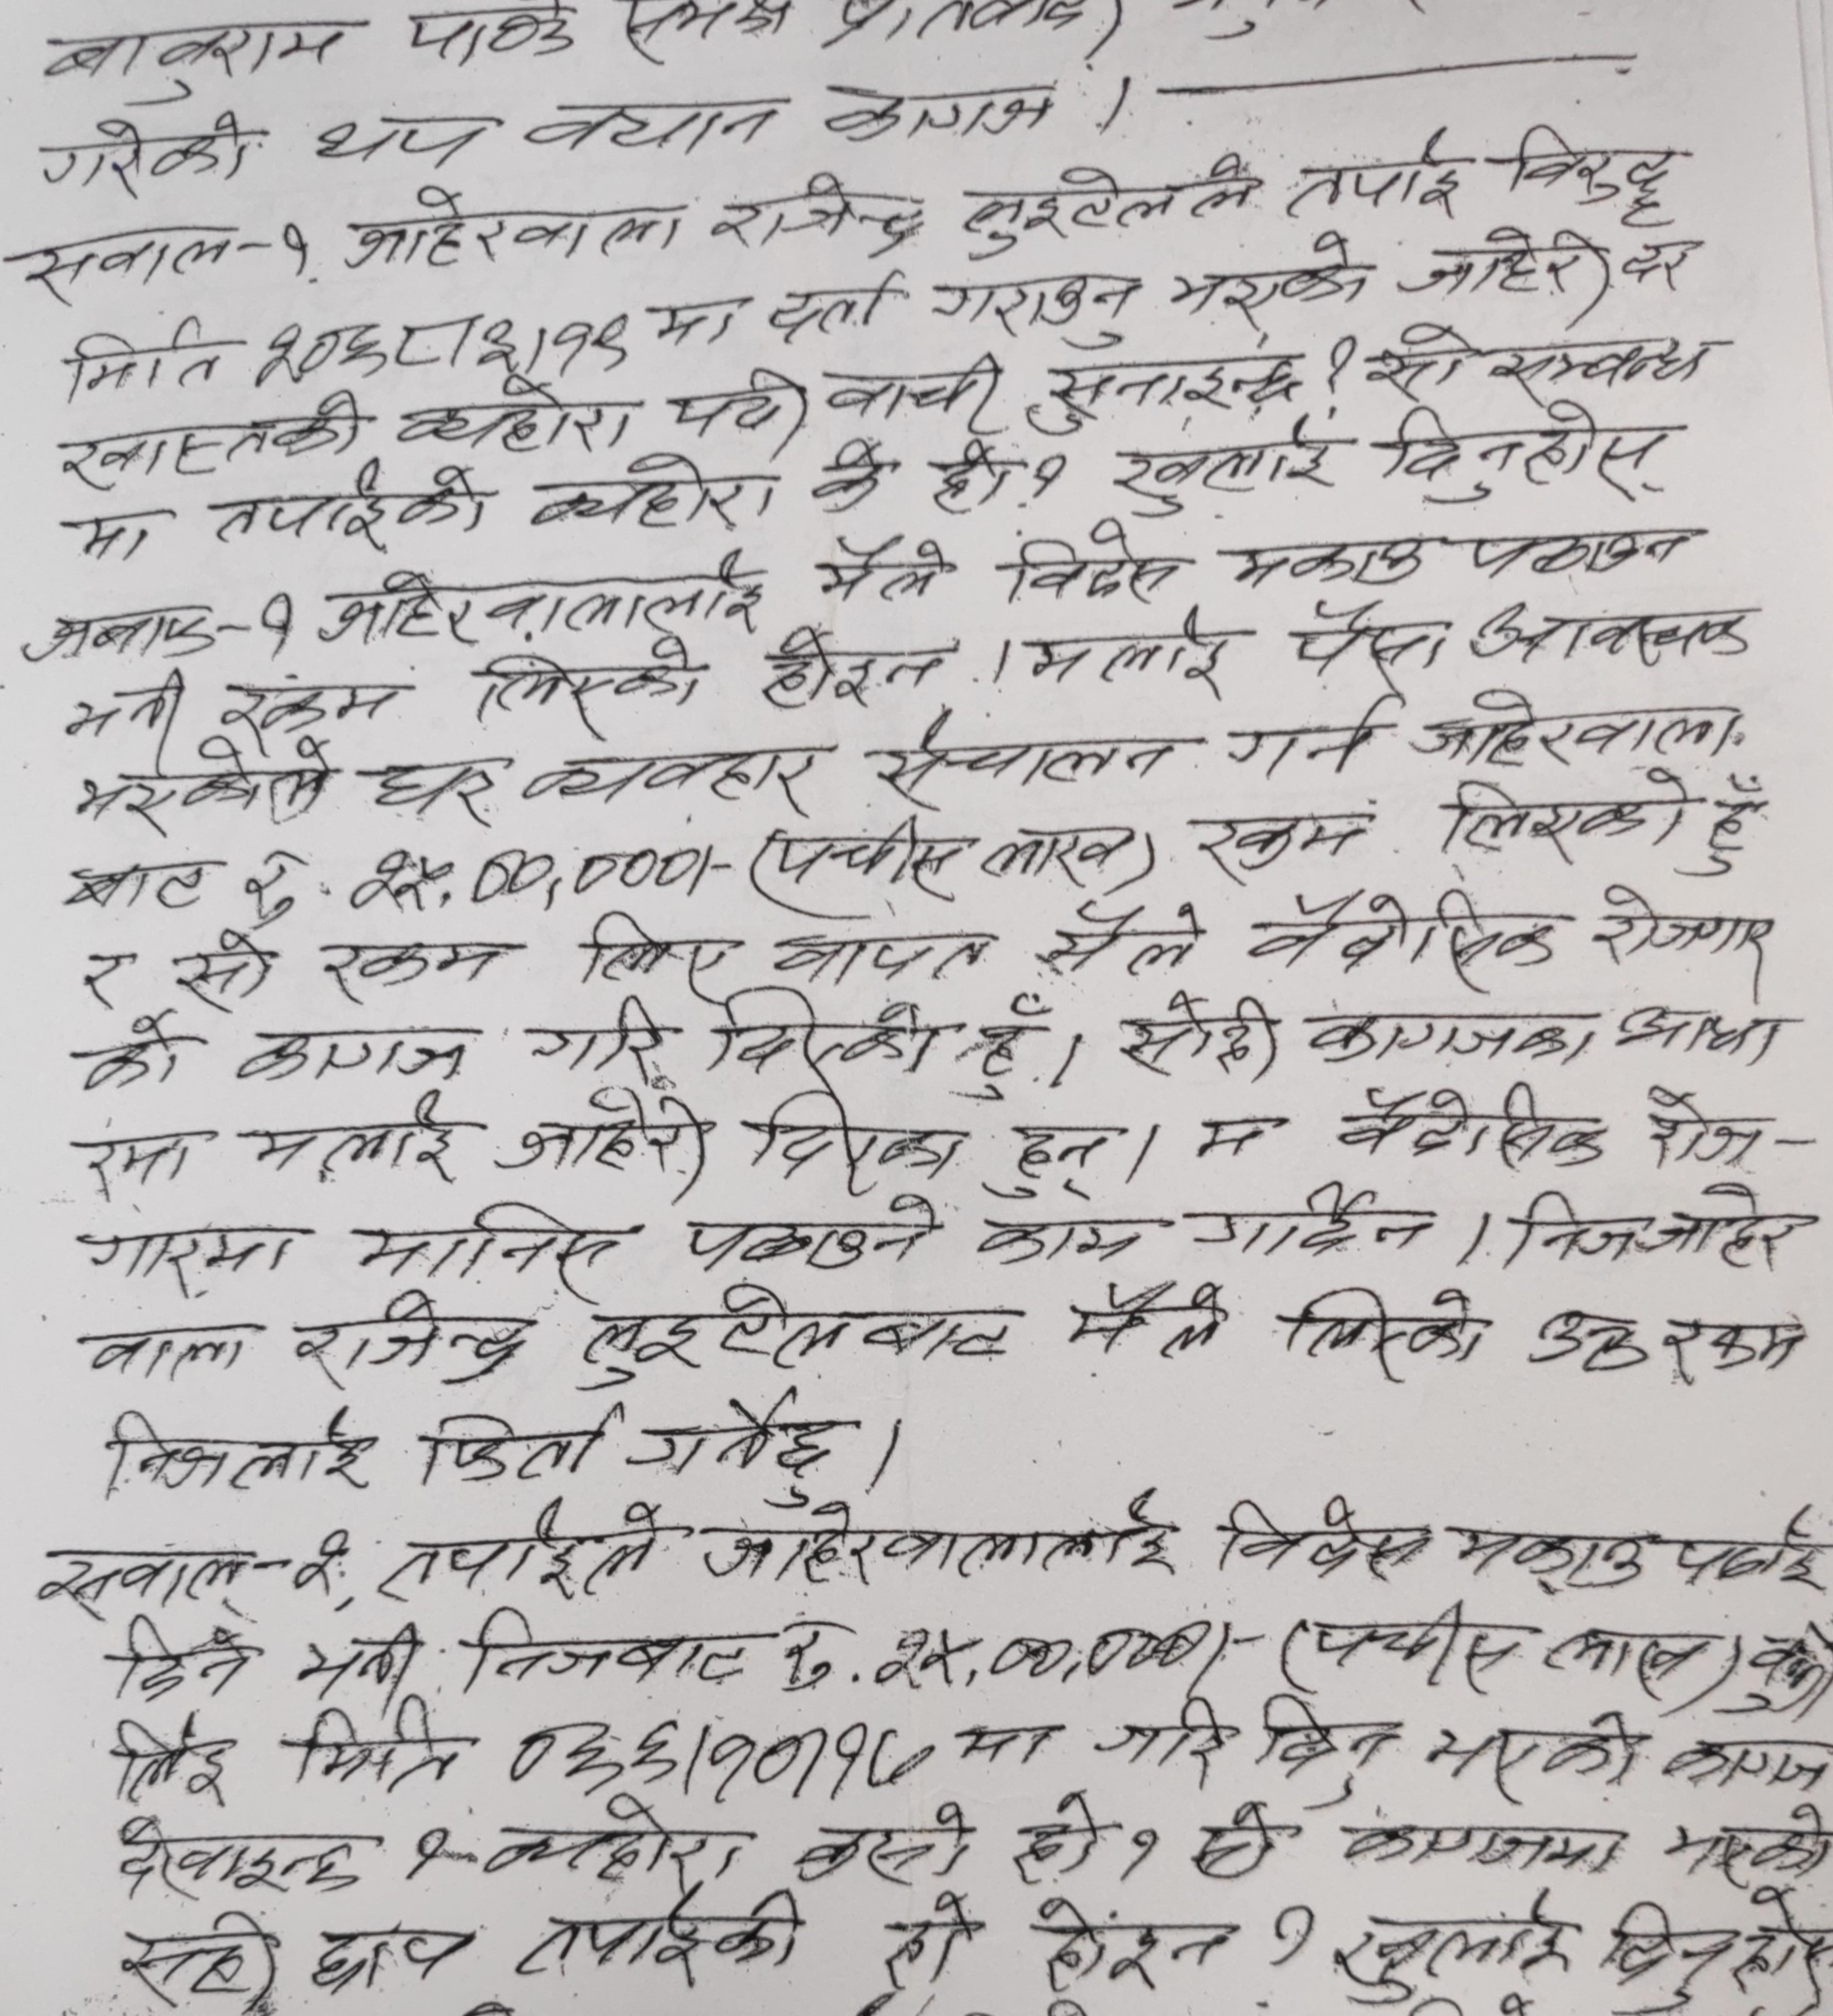 बाबुराम पाण्डे समक्ष प्रतिवादी
गरेको थप वयान कागज ।
सवाल-१. जाहेरवाला राजेन्द्र लुइटेलले तपाँई विरुद्ध
मिति २०६८।२।१९ मा दर्ता गराउनु भएको जाहेरी दर
खास्तको व्यहोरा पढी वाची सुनाइन्छ ? सो सम्वन्ध
मा तपाँईको व्यहोरा के हो ? खुलाई दिनुहोस्
जवाफ-१ जाहेरवालालाई मैले विदेस मकाउ पठाउन
भनी रकम लिएको होइन । मलाई पैसा आवस्यक
भएकोले घर व्यवहार संचालन गर्न जाहेरवाला
बाट रु. २५,००,०००।- (पच्चीस लाख) रकम लिएको हुँ
र सो रकम लिए वापत मैले वैदेसिक रोजगार
को कागज गरि दिएको हुँ । सोही कागजका आधा
रमा मलाई जाहेरी दिएका हुन् । म वैदेसिक रोज-
गारमा मानिस पठाउने काम गर्दिन । निज जाहेर
वाला राजेन्द्र लुइटेलबाट मैले लिएको उक्त रकम
निजलाई फिर्ता गर्नेछु ।
सवाल-२. तपाँईले जाहेरवालालाई विदेस मकाउ पठाई
दिने भनी निजबाट रु. २५,००,०००।- (पच्चीस लाख)
लिई मिति ०६६।१०।१८ मा गरि दिनु भएको कागज
देखाइन्छ ? व्यहोरा कस्तो हो ? सो कागजमा भएको
सही छाप तपाँईको हो होइन ? खुलाई दिनुहोस्